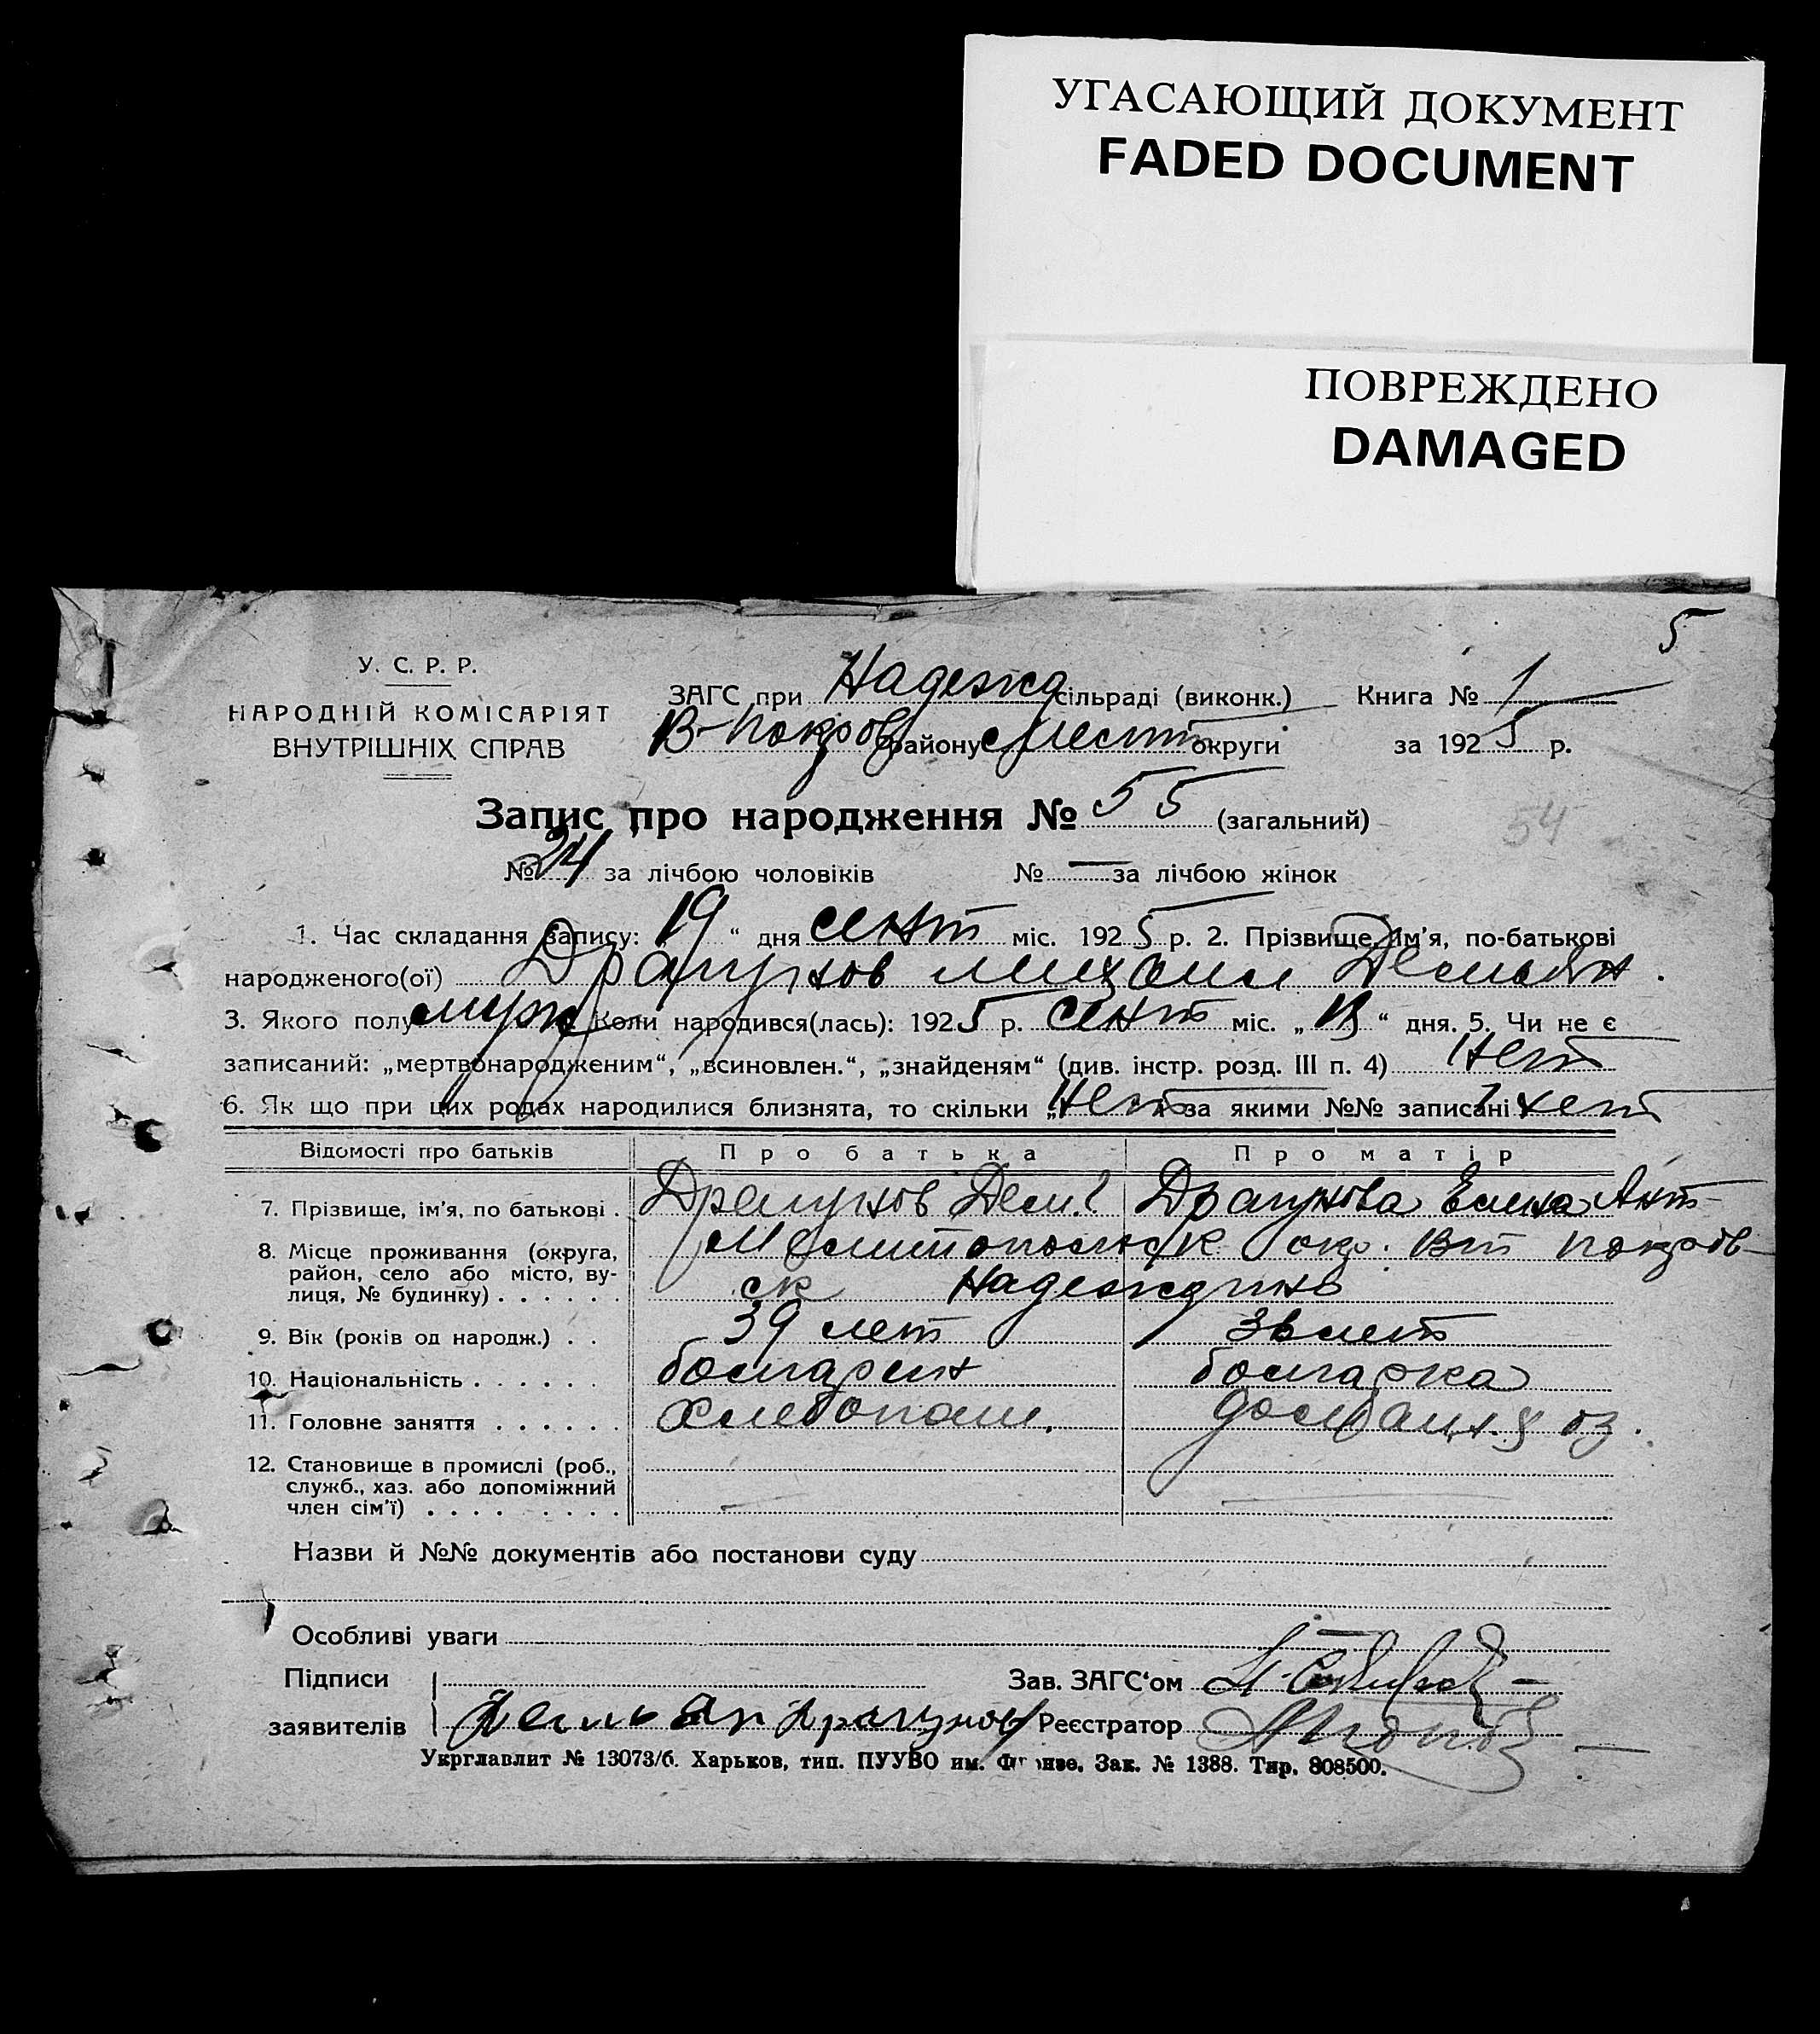 УГАСАЮЩИЙ ДОКУМЕНТ
FADED DOCUMENT
ПОВРЕЖДЕНО
DAMAGED
5
У. С. Р. Р.
НАРОДНІЙ КОМІСАРІЯТ
ВНУТРІШНІХ СПРАВ
ЗАГС при Надежд сільраді (виконк.) Книга № 1
В-Покров району Мелит округи за 1925 р.
Запис про народження № 55 (загальний)
54
№ 24 за лічбою чоловіків № — за лічбою жінок
1. Час складання запису: 19 “ дня сент міс. 1925 р. 2. Прізвище, ім’я, по-батькові
народженого(ої) Драгунов Михаил Демьян.
3. Якого полу муж Коли народився(лась): 1925 р. сент міс. „ “ дня. 5. Чи не є
записаний: „мертвонародженим“, „всиновлен.“, „знайденям“ (див. інстр. розд. III п. 4) Нет
6. Як що при цих родах народилися близнята, то скільки „Нет за якими №№ записані нет
Відомості про батьків Про батька Про матір
7. Прізвище, ім’я, по батькові . Драгунов Дем. Драгунова Елена Ант
8. Місце проживання (округа, район, село або місто, вулиця, № будинку) . . . . . Мелитопольск окр. Вт покров-
ск Надеждино
9. Вік (років од народж.) . . 39 лет 36 лет
10. Національність . . . . . . болгарин болгарка
11. Головне заняття . . . . . . Хлебопаш.
12. Становище в промислі (роб.,
служб., хаз. або допоміжний
член сім’ї) . . . . . . . .
Назви й №№ документів або постанови суду
Особливі уваги
Підписи Зав. ЗАГС‘ом
заявителів Демьян Драгунов Реєстратор
Укрглавлит № 13073/б. Харьков, тип. ПУУВО им. Фрунзе. Зак. № 1388. Тир. 808500.